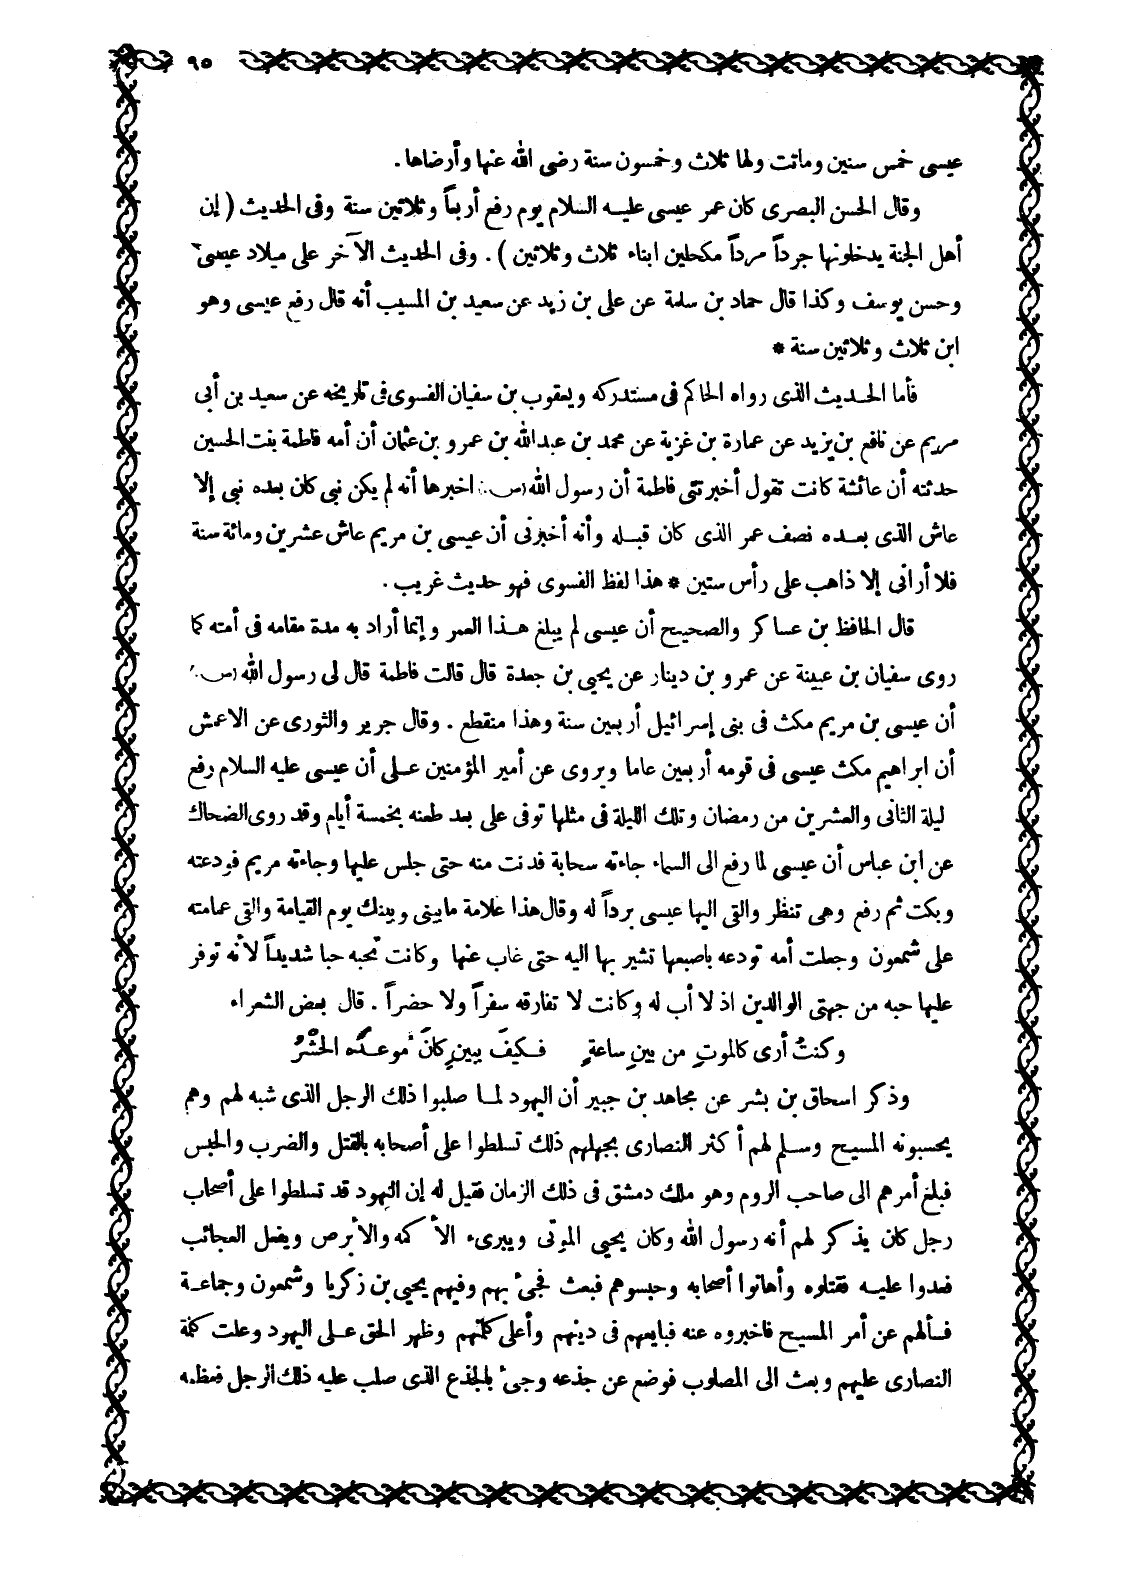 ٩٥
عيسى خمس سنين وماتت ولها ثلاث وخمسون سنة رضى الله عنها وأرضاها.
وقال الحسن البصرى كان عمر عيسى عليه السلام يوم رفع أربعاً وثلاثين سنة وفى الحديث (إن
أهل الجنة يدخلونها جرداً مرداً مكحلين ابناء ثلاث وثلاثين). وفى الحديث الآخر على ميلاد عيسى
وحسن يوسف وكذا قال حماد بن سلمة عن على بن زيد عن سعيد بن المسيب أنه قال رفع عيسى وهو
ابن ثلاث وثلاثين سنة *
فأما الحديث الذى رواه الحاكم فى مستدركه ويعقوب بن سفيان الفسوى فى تاريخه عن سعيد بن أبى
مريم عن نافع بن يزيد عن عمارة بن غزية عن محمد بن عبدالله بن عمرو بن عثمان أن أمه فاطمة بنت الحسين
حدثته أن عائشة كانت تقول أخبرتنى فاطمة أن رسول الله (س.) اخبرها أنه لم يكن نبى كان بعده نبى إلا
عاش الذى بعده نصف عمر الذى كان قبله وأنه أخبرنى أن عيسى بن مريم عاش عشرين ومائة سنة
فلا أرانى إلا ذاهب على رأس ستين * هذا لفظ الفسوى فهو حديث غريب.
قال الحافظ بن عساكر والصحيح أن عيسى لم يبلغ هذا العمر وإنما أراد به مدة مقامه فى أمته كما
روى سفيان بن عيينة عن عمرو بن دينار عن يحيى بن جعدة قال قالت فاطمة قال لى رسول الله (س.)
أن عيسى بن مريم مكث فى بنى إسرائيل أربعين سنة وهذا منقطع. وقال جرير والثورى عن الاعمش
أن ابراهيم مكث عيسى فى قومه أربعين عاما ويروى عن أمير المؤمنين على أن عيسى عليه السلام رفع
ليلة الثانى والعشرين من رمضان وتلك الليلة فى مثلها توفى على بعد طعنه بخمسة أيام وقد روى الضحاك
عن ابن عباس أن عيسى لما رفع الى السماء جاءته سحابة فدنت منه حتى جلس عليها وجاءته مريم فودعته
وبكت ثم رفع وهى تنظر والقى اليها عيسى برداً له وقال هذا علامة مابينى وبينك يوم القيامة والقى عمامته
على شمعون وجعلت أمه تودعه باصبعها تشير بها اليه حتى غاب عنها وكانت تحبه حبا شديداً لأنه توفر
عليها حبه من جهتى الوالدين اذ لا أب له وكانت لا تفارقه سفراً ولا حضراً. قال بعض الشعراء
وكنتُ أرى كالموتِ من بينِ ساعةٍ فكيفَ ببينٍ كانَ موعدُه الحشْرُ
وذكر اسحاق بن بشر عن مجاهد بن جبير أن اليهود لما صلبوا ذلك الرجل الذى شبه لهم وهم
يحسبونه المسيح وسلم لهم أكثر النصارى بجهلهم ذلك تسلطوا على أصحابه بالقتل والضرب والحبس
فبلغ أمرهم الى صاحب الروم وهو ملك دمشق فى ذلك الزمان فقيل له إن اليهود قد تسلطوا على أصحاب
رجل كان يذكر لهم أنه رسول الله وكان يحيى الموتى ويبرىء الأكمه والأبرص ويفعل العجائب
فعدوا عليه فقتلوه وأهانوا أصحابه وحبسوهم فبعث فجىء بهم وفيهم يحيى بن زكريا وشمعون وجماعة
فسألهم عن أمر المسيح فاخبروه عنه فبايعهم فى دينهم وأعلى كلمتهم وظهر الحق على اليهود وعلت كلمة
النصارى عليهم وبعث الى المصلوب فوضع عن جذعه وجىء بالجذع الذى صلب عليه ذلك الرجل فعظمه